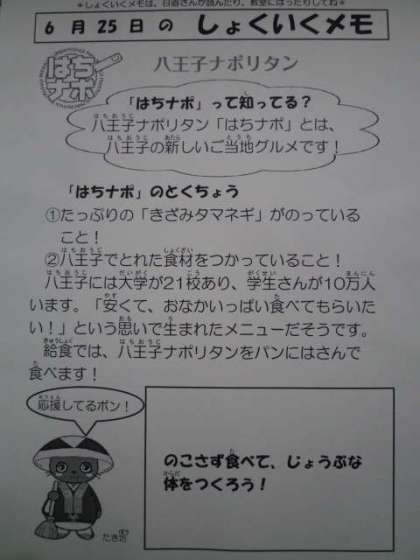 ＊しょくいくメモは、日直さんが読んだり、教室にはったりしてね＊
6月25日の しょくいくメモ
はち
ナポ
八王子ナポリタン
「はちナポ」って知ってる？
八王子ナポリタン「はちナポ」とは、
八王子の新しいご当地グルメです！
「はちナポ」のとくちょう
①たっぷりの「きざみタマネギ」がのっている
こと！
②八王子でとれた食材をつかっていること！
八王子には大学が21校あり、学生さんが10万人
います。「安くて、おなかいっぱい食べてもらいた
い！」という思いで生まれたメニューだそうです。
給食では、八王子ナポリタンをパンにはさんで
食べます！
応援してるポン！
のこさず食べて、じょうぶな
体をつくろう！
たき坊